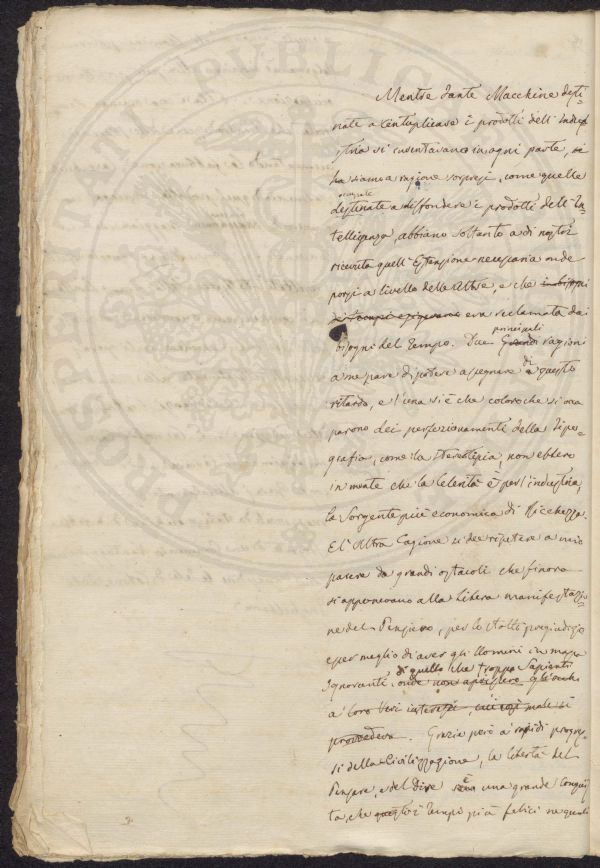 Mentre tante Macchine desti-
nate a Centuplicare i prodotti dell'Indu-
stria si inventavano in ogni parte, si
ha siamo a ragione sorpresi, come quelle
destinate a diffondere i prodotti dell'In-
telligenza, abbiano soltanto a dì nostri
ricevuta quell'Estensione necessaria onde
porsi a livello delle altre, e che in bisogni
era reclamata dai
bisogni del tempo. Due Grandi principali ragioni
a me pare di potere assegnare di a questo
ritardo, e l'una si è che coloro che si occu
parono dei perfezionamenti della Tipo-
grafia, come la Stereotipia, non ebbero
in mente che la Celerità è per l'industria,
la Sorgente più economica di Ricchezza.
E l'Altra Cagione si dee ripetere a mio
parere da grandi ostacoli che finora
si opponevano alla libera manifestazio-
ne del Pensiero, per lo stolto pregiudizio
esser meglio di aver gli Uomini in massa
di quello che troppo Sapienti
Ignoranti, onde non aprissero gli occhi
a loro Veri interessi, cui così male si
provvedeva. Grazie però a rapidi progres-
si della Civilizzazione, la libertà del
Pensare, e del Dire è una grande Conquis
ta, che questi tempi più felici ne quali